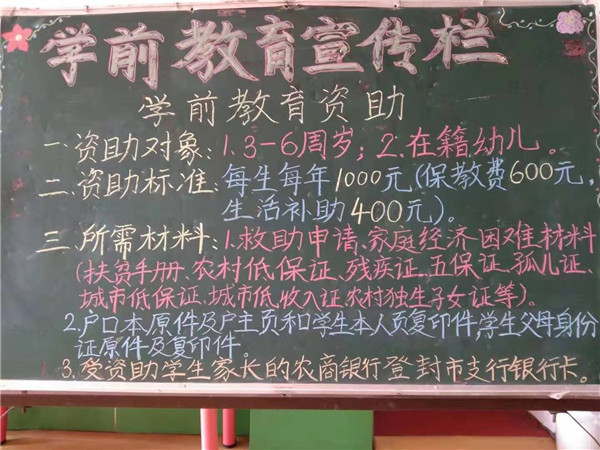 学前教育宣传栏
学前教育资助
一、资助对象：1.3-6周岁；2.在籍幼儿。
二、资助标准：每生每年1000元(保教费600元，
生活补助400元)。
三、所需材料：1.救助申请、家庭经济困难材料
(扶贫手册、农村低保证、残疾证、五保证、孤儿证、
城市低保证、城市低收入证、农村独生子女证等)。
2.户口本原件及户主页和学生本人页复印件，学生父母身份
证原件及复印件。
3.受资助学生家长的农商银行登封市支行银行卡。